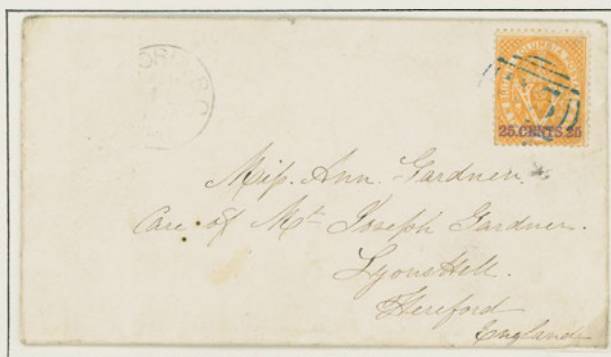 COLUMBIA POSTAGE
25.CENTS.25
B.C
Miss. Ann. Gardner.
Care of Mr Joseph Gardner.
Lyonshall.
Hereford
England